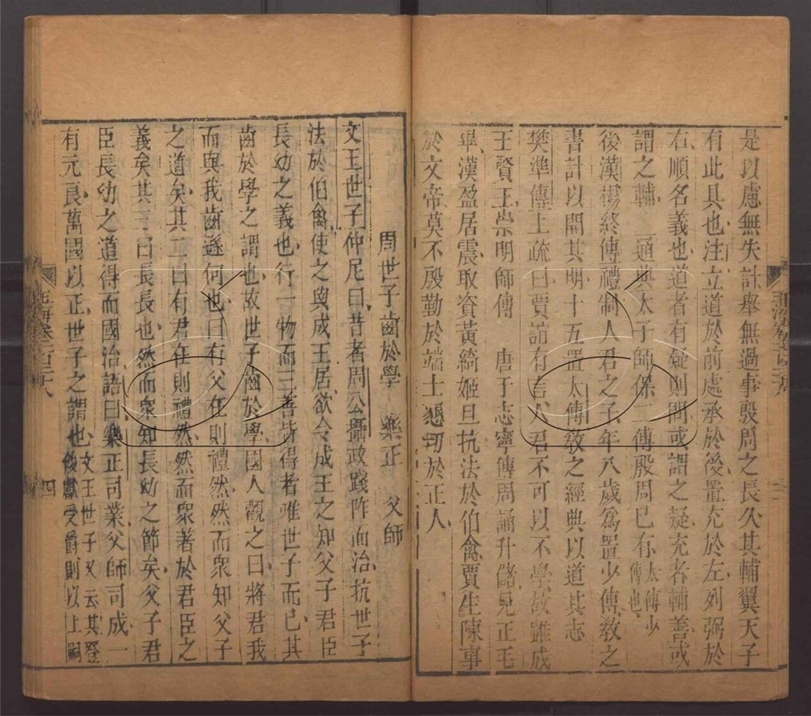 是以慮無失計舉無過事殷周之長久其輔翼天子
有此具也注立道於前處承於後置充於左列弼於
右順名義也道者有疑則問或謂之疑充者輔善或
謂之輔 通典太子師保二傅殷周已有太傅少傅也
後漢楊終傳禮制人君之子年八歲為置少傅教之
書計以開其明十五置太傅教之經典以道其志
樊準傳上疏曰賈誼有言人君不可以不學故雖成
王賢王崇明師傅 唐于志寧傳周誦升儲見正毛
畢漢盈居震取資黃綺姬旦抗法於伯禽賈生陳事
於文帝莫不殷勤於端士懇切於正人
周世子齒於學 樂正 父師
文王世子仲尼曰昔者周公攝政踐阼而治抗世子
法於伯禽使之與成王居欲令成王之知父子君臣
長幼之義也行一物而三善皆得者唯世子而已其
齒於學之謂也故世子齒於學國人觀之曰將君我
而與我齒遜何也曰有父在則禮然然而眾知父子
之道矣其二曰有君在則禮然然而眾著於君臣之
義矣其三曰長長也然而眾知長幼之節矣父子君
臣長幼之道得而國治語曰樂正司業父師司成一
有元良萬國以正世子之謂也文王世子又云其登餕獻受爵則以上嗣
玉海卷一百二十八
四